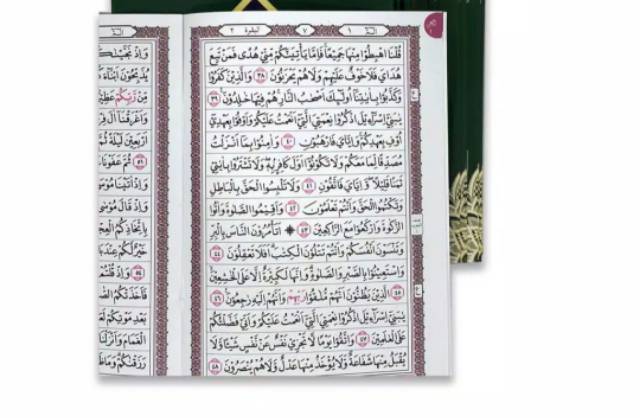 الم ١ ٧ البقرة ٢
قُلْنَا اهْبِطُوا مِنْهَا جَمِيعًا فَإِمَّا يَأْتِيَنَّكُمْ مِنِّي هُدًى فَمَنْ تَبِعَ
هُدَايَ فَلَا خَوْفٌ عَلَيْهِمْ وَلَا هُمْ يَحْزَنُونَ ٣٨ وَالَّذِينَ كَفَرُوا
وَكَذَّبُوا بِآيَاتِنَا أُولَٰئِكَ أَصْحَابُ النَّارِ هُمْ فِيهَا خَالِدُونَ ٣٩
يَا بَنِي إِسْرَائِيلَ اذْكُرُوا نِعْمَتِيَ الَّتِي أَنْعَمْتُ عَلَيْكُمْ وَأَوْفُوا بِعَهْدِي
أُوفِ بِعَهْدِكُمْ وَإِيَّايَ فَارْهَبُونِ ٤٠ وَآمِنُوا بِمَا أَنْزَلْتُ
مُصَدِّقًا لِمَا مَعَكُمْ وَلَا تَكُونُوا أَوَّلَ كَافِرٍ بِهِ وَلَا تَشْتَرُوا بِآيَاتِي
ثَمَنًا قَلِيلًا وَإِيَّايَ فَاتَّقُونِ ٤١ وَلَا تَلْبِسُوا الْحَقَّ بِالْبَاطِلِ
وَتَكْتُمُوا الْحَقَّ وَأَنْتُمْ تَعْلَمُونَ ٤٢ وَأَقِيمُوا الصَّلَاةَ وَآتُوا
الزَّكَاةَ وَارْكَعُوا مَعَ الرَّاكِعِينَ ٤٣ أَتَأْمُرُونَ النَّاسَ بِالْبِرِّ
وَتَنْسَوْنَ أَنْفُسَكُمْ وَأَنْتُمْ تَتْلُونَ الْكِتَابَ أَفَلَا تَعْقِلُونَ ٤٤
وَاسْتَعِينُوا بِالصَّبْرِ وَالصَّلَاةِ وَإِنَّهَا لَكَبِيرَةٌ إِلَّا عَلَى الْخَاشِعِينَ
٤٥ الَّذِينَ يَظُنُّونَ أَنَّهُمْ مُلَاقُو رَبِّهِمْ وَأَنَّهُمْ إِلَيْهِ رَاجِعُونَ ٤٦
يَا بَنِي إِسْرَائِيلَ اذْكُرُوا نِعْمَتِيَ الَّتِي أَنْعَمْتُ عَلَيْكُمْ وَأَنِّي فَضَّلْتُكُمْ
عَلَى الْعَالَمِينَ ٤٧ وَاتَّقُوا يَوْمًا لَا تَجْزِي نَفْسٌ عَنْ نَفْسٍ شَيْئًا وَلَا
يُقْبَلُ مِنْهَا شَفَاعَةٌ وَلَا يُؤْخَذُ مِنْهَا عَدْلٌ وَلَا هُمْ يُنْصَرُونَ ٤٨
وَإِذْ نَجَّيْنَاكُمْ
يُذَبِّحُونَ أَبْنَاءَ
مِنْ رَبِّكُمْ عَظِيمٌ
وَأَغْرَقْنَا آلَ
أَرْبَعِينَ لَيْلَةً
٥١ ثُمَّ عَفَوْنَا
وَإِذْ آتَيْنَا
وَإِذْ قَالَ
بِاتِّخَاذِكُمُ
خَيْرٌ لَكُمْ عِنْدَ
وَإِذْ قُلْتُمْ
فَأَخَذَتْكُمُ
بَعْدِ مَوْتِكُمْ
الْغَمَامَ وَأَنْزَلْنَا
رَزَقْنَاكُمْ وَمَا